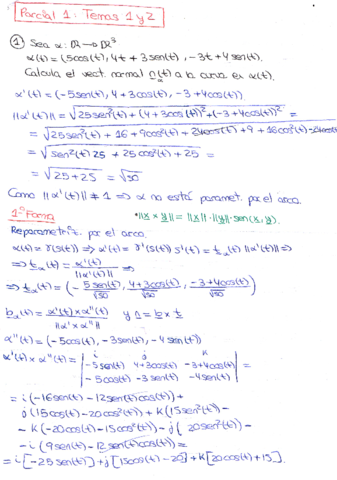 Parcial 1: Temas 1 y 2
① Sea α: ℝ → ℝ³
α(t) = (5cos(t), 4t + 3sen(t), -3t + 4sen(t)).
Calcula el vect. normal n_α(t) a la curva en α(t).
α'(t) = (-5sen(t), 4 + 3cos(t), -3 + 4cos(t)).
||α'(t)|| = √(25sen²(t) + (4 + 3cos(t))² + (-3 + 4cos(t))²) =
= √(25sen²(t) + 16 + 9cos²(t) + 24cos(t) + 9 + 16cos²(t) - 24cos(t)
= √(sen²(t) 25 + 25cos²(t) + 25) =
= √(25 + 25) = √50
Como ||α'(t)|| ≠ 1 ⇒ α no está paramet. por el arco.
1ª Forma
• ||x × y|| = ||x|| · ||y|| · sen(x, y).
Reparametriz. por el arco.
α(t) = γ(s(t)) ⇒ α'(t) = γ'(s(t)) s'(t) = t_α(t) ||α'(t)|| ⇒
⇒ t_α(t) = α'(t) / ||α'(t)|| ⇒
⇒ t_α(t) = (-5sen(t)/√50, 4 + 3cos(t)/√50, -3 + 4cos(t)/√50)
b_α(t) = α'(t) × α''(t) / ||α' × α''|| y n = b × t
α''(t) = (-5cos(t), -3sen(t), -4sen(t))
α'(t) × α''(t) = | i j k
-5sen(t) 4+3cos(t) -3+4cos(t)
-5cos(t) -3sen(t) -4sen(t) | =
= i(-16sen(t) - 12sen(t)cos(t)) +
j(15cos(t) - 20cos²(t)) + k(15sen²(t)) -
- k(-20cos(t) - 15cos²(t)) - j(20sen²(t)) -
- i(9sen(t) - 12sen(t)cos(t)) =
= i[-25sen(t)] + j[15cos(t) - 20] + k[20cos(t) + 15].